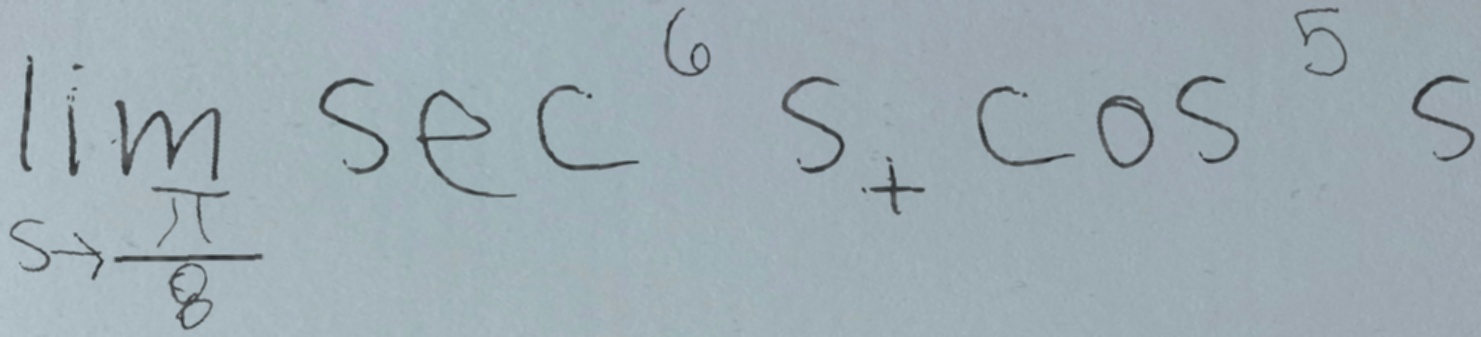 \lim_{s \to \frac{\pi}{8}} \sec^{6} s + \cos^{5} s